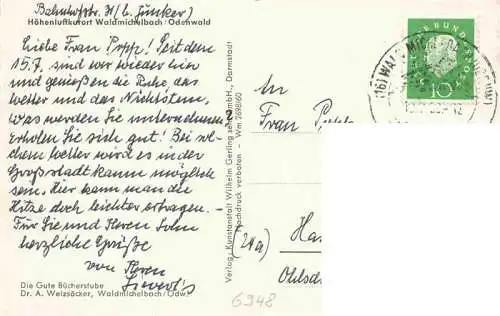 Bahnhofstr. 31 (b. Junker)
Höhenluftkurort Waldmichelbach/Odenwald
Liebe Frau Popp! Seit dem
15.7. sind wir wieder hier
und genießen die Ruhe, das
Wetter und das Nichtstun.
Was werden Sie unternehmen?
Erholen Sie sich gut! Bei sol-
chem Wetter wird es in der
Großstadt kaum möglich
sein. Hier kann man die
Hitze doch leichter ertragen. -
Für Sie und Ihren Sohn
herzliche Grüße
von Ihren
Sievert's
Die Gute Bücherstube
Dr. A. Weizsäcker, Waldmichelbach/Odw.
Verlag: Kunstanstalt Wilhelm Gerling sen. GmbH., Darmstadt
Nachdruck verboten - Wm 268/60
(16) WALD-MICHELBACH
10
Frau
(24a) Ha
Ohlsd
6948